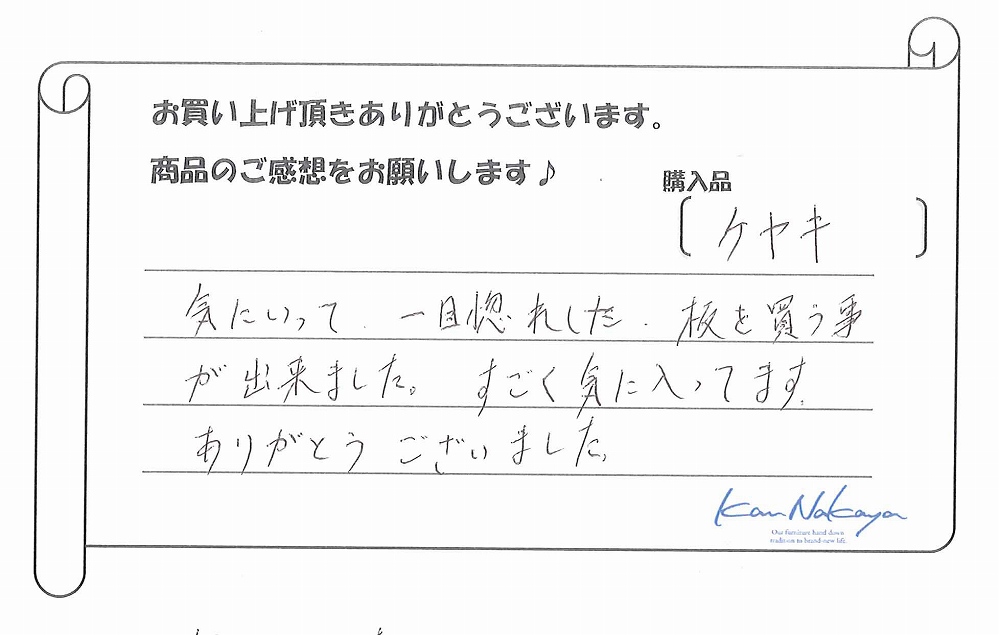 お買い上げ頂きありがとうございます。
商品のご感想をお願いします♪
購入品
〔 ケヤキ 〕
気にいって、一目惚れした、板を買う事
が出来ました。 すごく気に入ってます。
ありがとう ございました。
Kan Nakaya
Our furniture hand down
tradition to brand-new life.